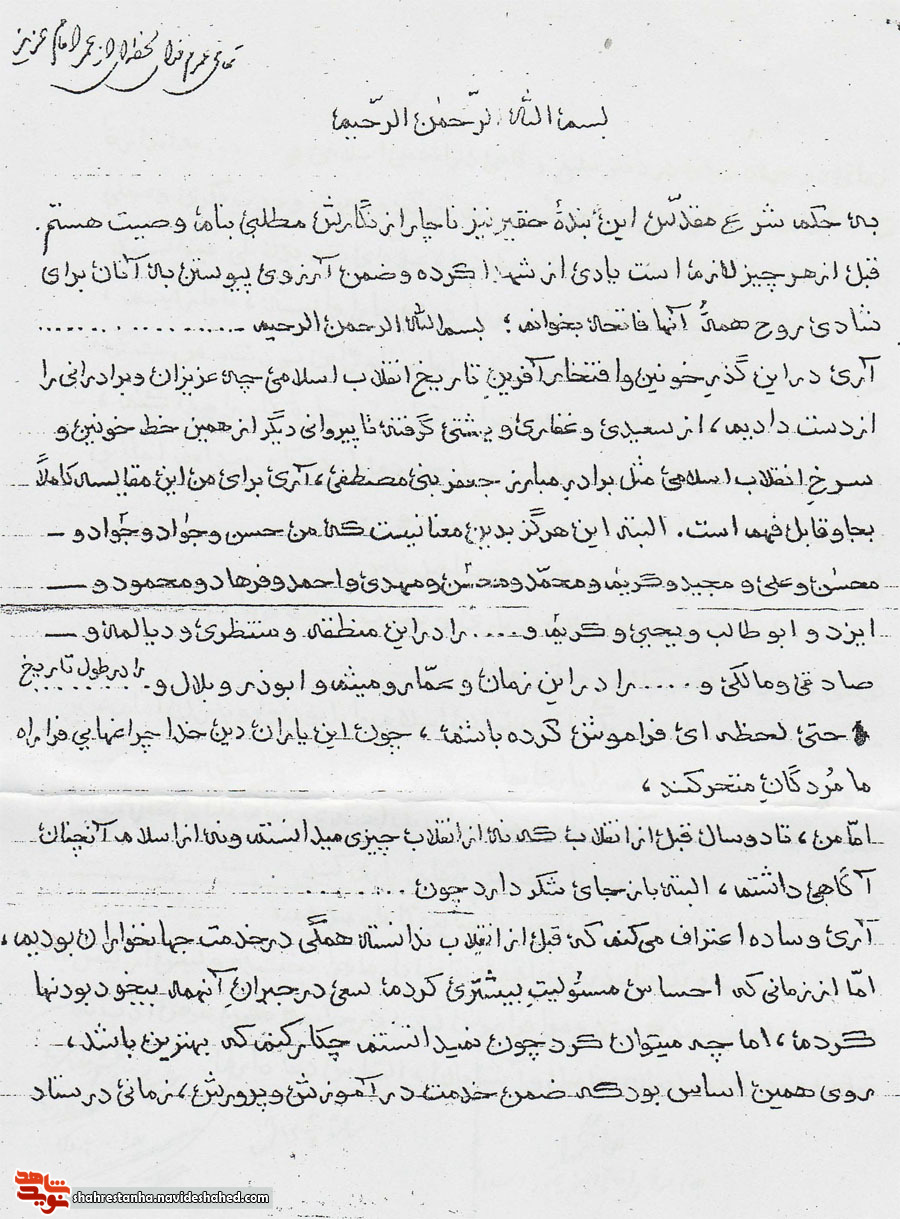 تمامی عمرم فدای لحظه‌ای از عمر امام عزیز
بسم الله الرّحمٰن الرّحیم
به حکم شرع مقدّس این بندهٔ حقیر نیز ناچار از نگارش مطلبی بنام وصیت هستم.
قبل از هر چیز لازم است یادی از شهدا کرده و ضمن آرزوی پیوستن به آنان برای
شادی روح همهٔ آنها فاتحه بخوانم؛ بسم الله الرحمن الرحیم ....................
آری در این گذرِ خونین و افتخار آفرینِ تاریخ انقلاب اسلامی چه عزیزان و برادرانی را
از دست دادیم، از سعیدی و غفاری و بهشتی گرفته تا پیروانی دیگر از همین خط خونین و
سرخِ انقلاب اسلامی مثل برادرِ مبارز جعفر بنی مصطفی، آری برای من این مقایسه کاملاً
بجا و قابل فهم است. البته این هرگز بدین معنا نیست که من حسن و جواد و جواد و
محسن و علی و مجید و کریم و محمّد و محسن و مهدی و احمد و فرهاد و محمود و
ایزد و ابوطالب و یحیی و کریم و .... را در این منطقه و منتظری و دیالمه و
صادقی و مالکی و ..... را در این زمان و عمّار و میثم و ابوذر و بلال و. را در طول تاریخ
حتی لحظه ای فراموش کرده باشم، چون این یاران دین خدا چراغهایی فرا راه
ما مُردگانِ متحرکند،
امّا من، تا دو سال قبل از انقلاب که نه از انقلاب چیزی میدانستم و نه از اسلام آنچنان
آگاهی داشتم، البته باز جای شکر دارد چون ..........
آری و ساده اعتراف می‌کنم که قبل از انقلاب ندانسته همگی در خدمت جهانخواران بودیم،
امّا از زمانی که احساس مسئولیتِ بیشتری کردم سعی در جبرانِ آنهمه بیخود بودنها
کردم، اما چه میتوان کرد چون نمیدانستم چکار کنم که بهترین باشد،
روی همین اساس بود که ضمن خدمت در آموزش و پرورش، زمانی در ستاد
نوید شاهد
shahrestanha.navideshahed.com